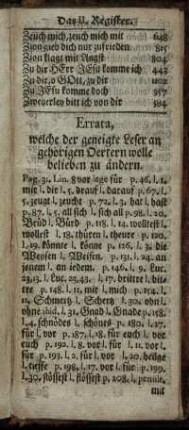 Das II. Register.
Zeuch mich, zeuch mich mit 648
Zion gieb dich nur zufrieden 815
Zion klagt mit Angst 804
Zu dir HErr JEsu komme ich 443
Zu dir, o GOtt, zu dir
Zu JEsu komme doch 357
Zweyerley bitt ich von dir 384
Errata,
welche der geneigte Leser an
gehörigen Oertern wolle
belieben zu ändern.
Pag. 31. Lin. 8 vor für p. 46. l. 4.
mit l die l. 5. drauf l darauf p. 67. l.
5. zeugt l zeucht p. 72. l. 3. hat l hast
p. 87. l. 5. all sich l sich all p. 98. l. 20.
Brüd l Bürd p. 118. l. 14. wolltest l
wollest l. 18. thüren l theure p. 120.
l. 19. könne l könne p. 126. l. 3. die
Weesen l Weisen. p. 131. l. 24. an
jenem l an iedem. p. 146. l. 9. Luc.
23, 13. l Luc. 23, 43. l. 17. britte l bitte
p. 148. l. 3. mit l mich p. 164. l.
11. Schmertz l Schertz l. 30. ohn l
ohne ibid. l. 31. Gnad l Gnade p. 158.
l. 4. schnödes l schönes p. 180. l. 27.
für l vor p. 187. l. 18. für euch l vor
euch p. 192. l. 8. vor l für l. 11. vor l
für p. 193. l. 2. für l vor l. 20. heilge
l tieffe p. 198. l. 17. vor l für p. 199.
l. 30. p. 208. l.
mit